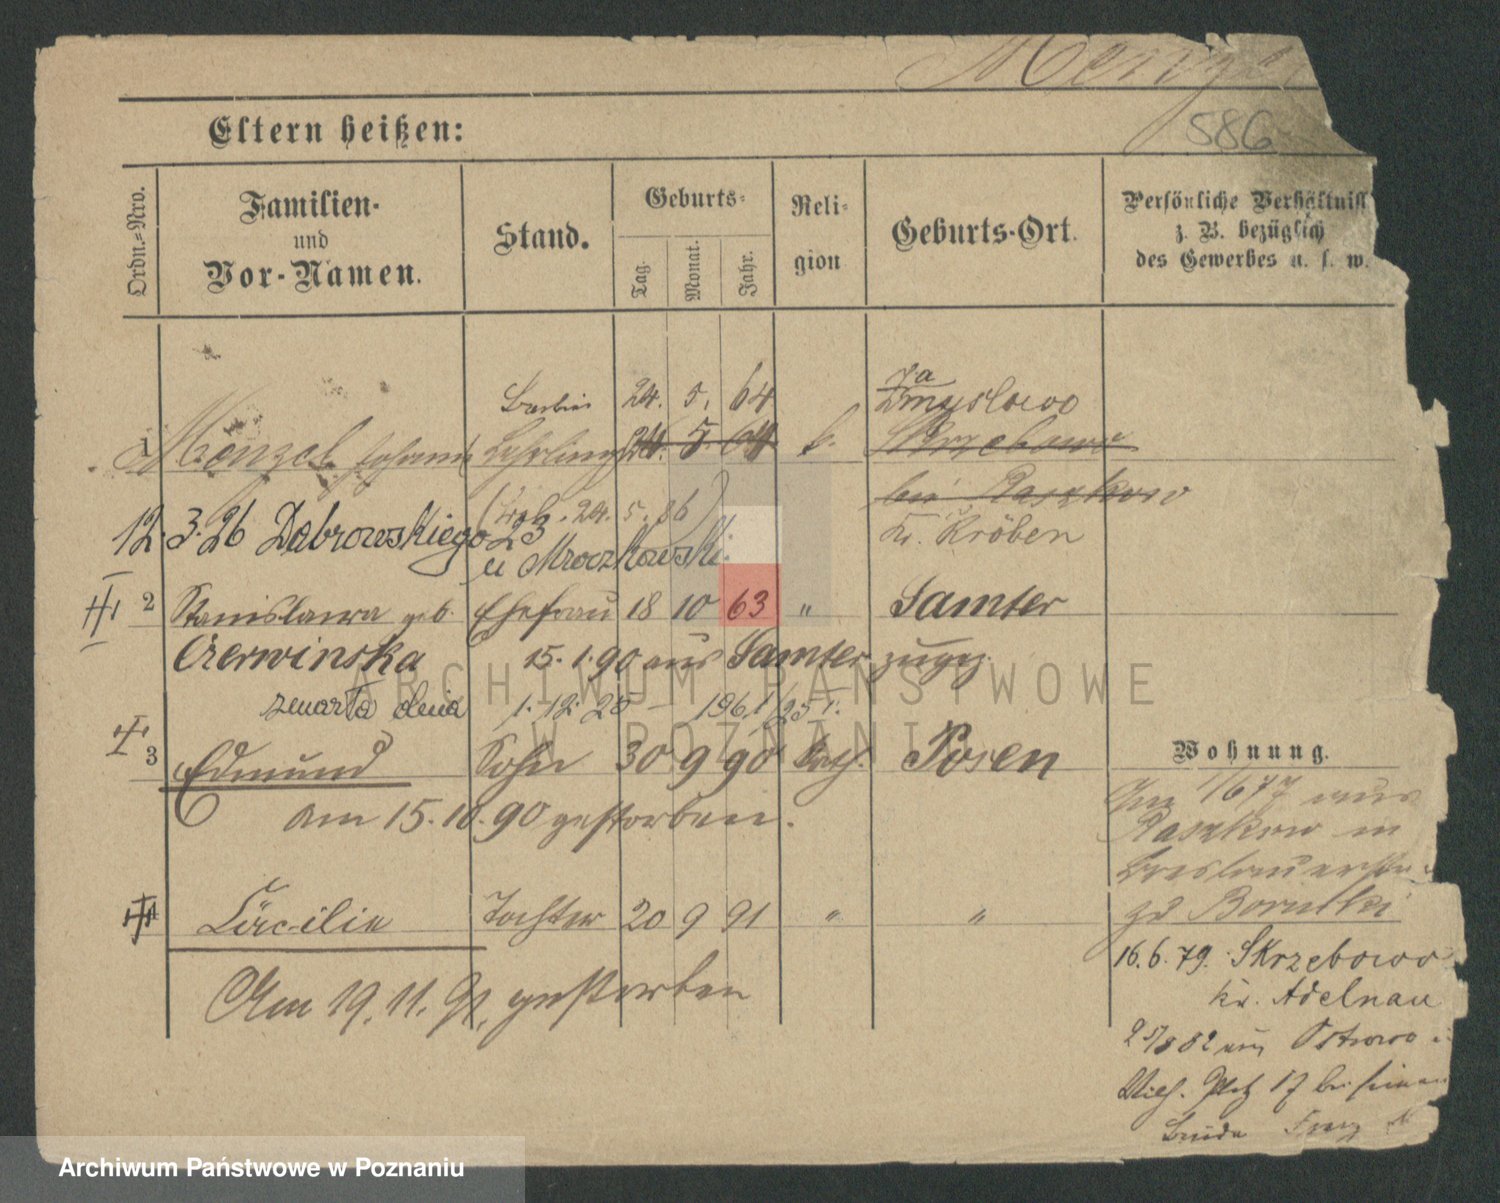 Menzel
586
Eltern heißen:
Ordn.-Nro.
Familien-
und
Vor-Namen.
Stand.
Geburts-
Tag.
Monat.
Jahr.
Reli-
gion
Geburts-Ort.
Persönliche Verhältniss
z. B. bezüglich
des Gewerbes u. s. w.
24. 5. 64
Zmyslowo
1 Menzel Johann Lehrling 24. 5. 64 k. Skrzebowo
bei Raszkow
24. 5. 86)
Kr. Kröben
12.3.26 Dąbrowskiego 23
u Mroczkowski
2 Stanislawa geb. Ehefrau 18 10 63 " Samter
Czerwinska 15.1.90 aus Samter zugez.
zmarła dnia 1.12.25 - 1961/25 I.
3 Edmund Sohn 30 9 90 kath. Posen
am 15.10.90 gestorben.
4 Cäcilie Tochter 20 9 91 " "
Am 19.11.91. gestorben
Wohnung.
1/677 aus
Raszkow in
Breslauerstr.
zu
16.6.79. Skrzebowo
Kr. Adelnau
25/8 82 aus Ostrowo
Wilh. Platz 17 bei seinem
Bruder Franz
ARCHIWUM PAŃSTWOWE
W POZNANIU
Archiwum Państwowe w Poznaniu